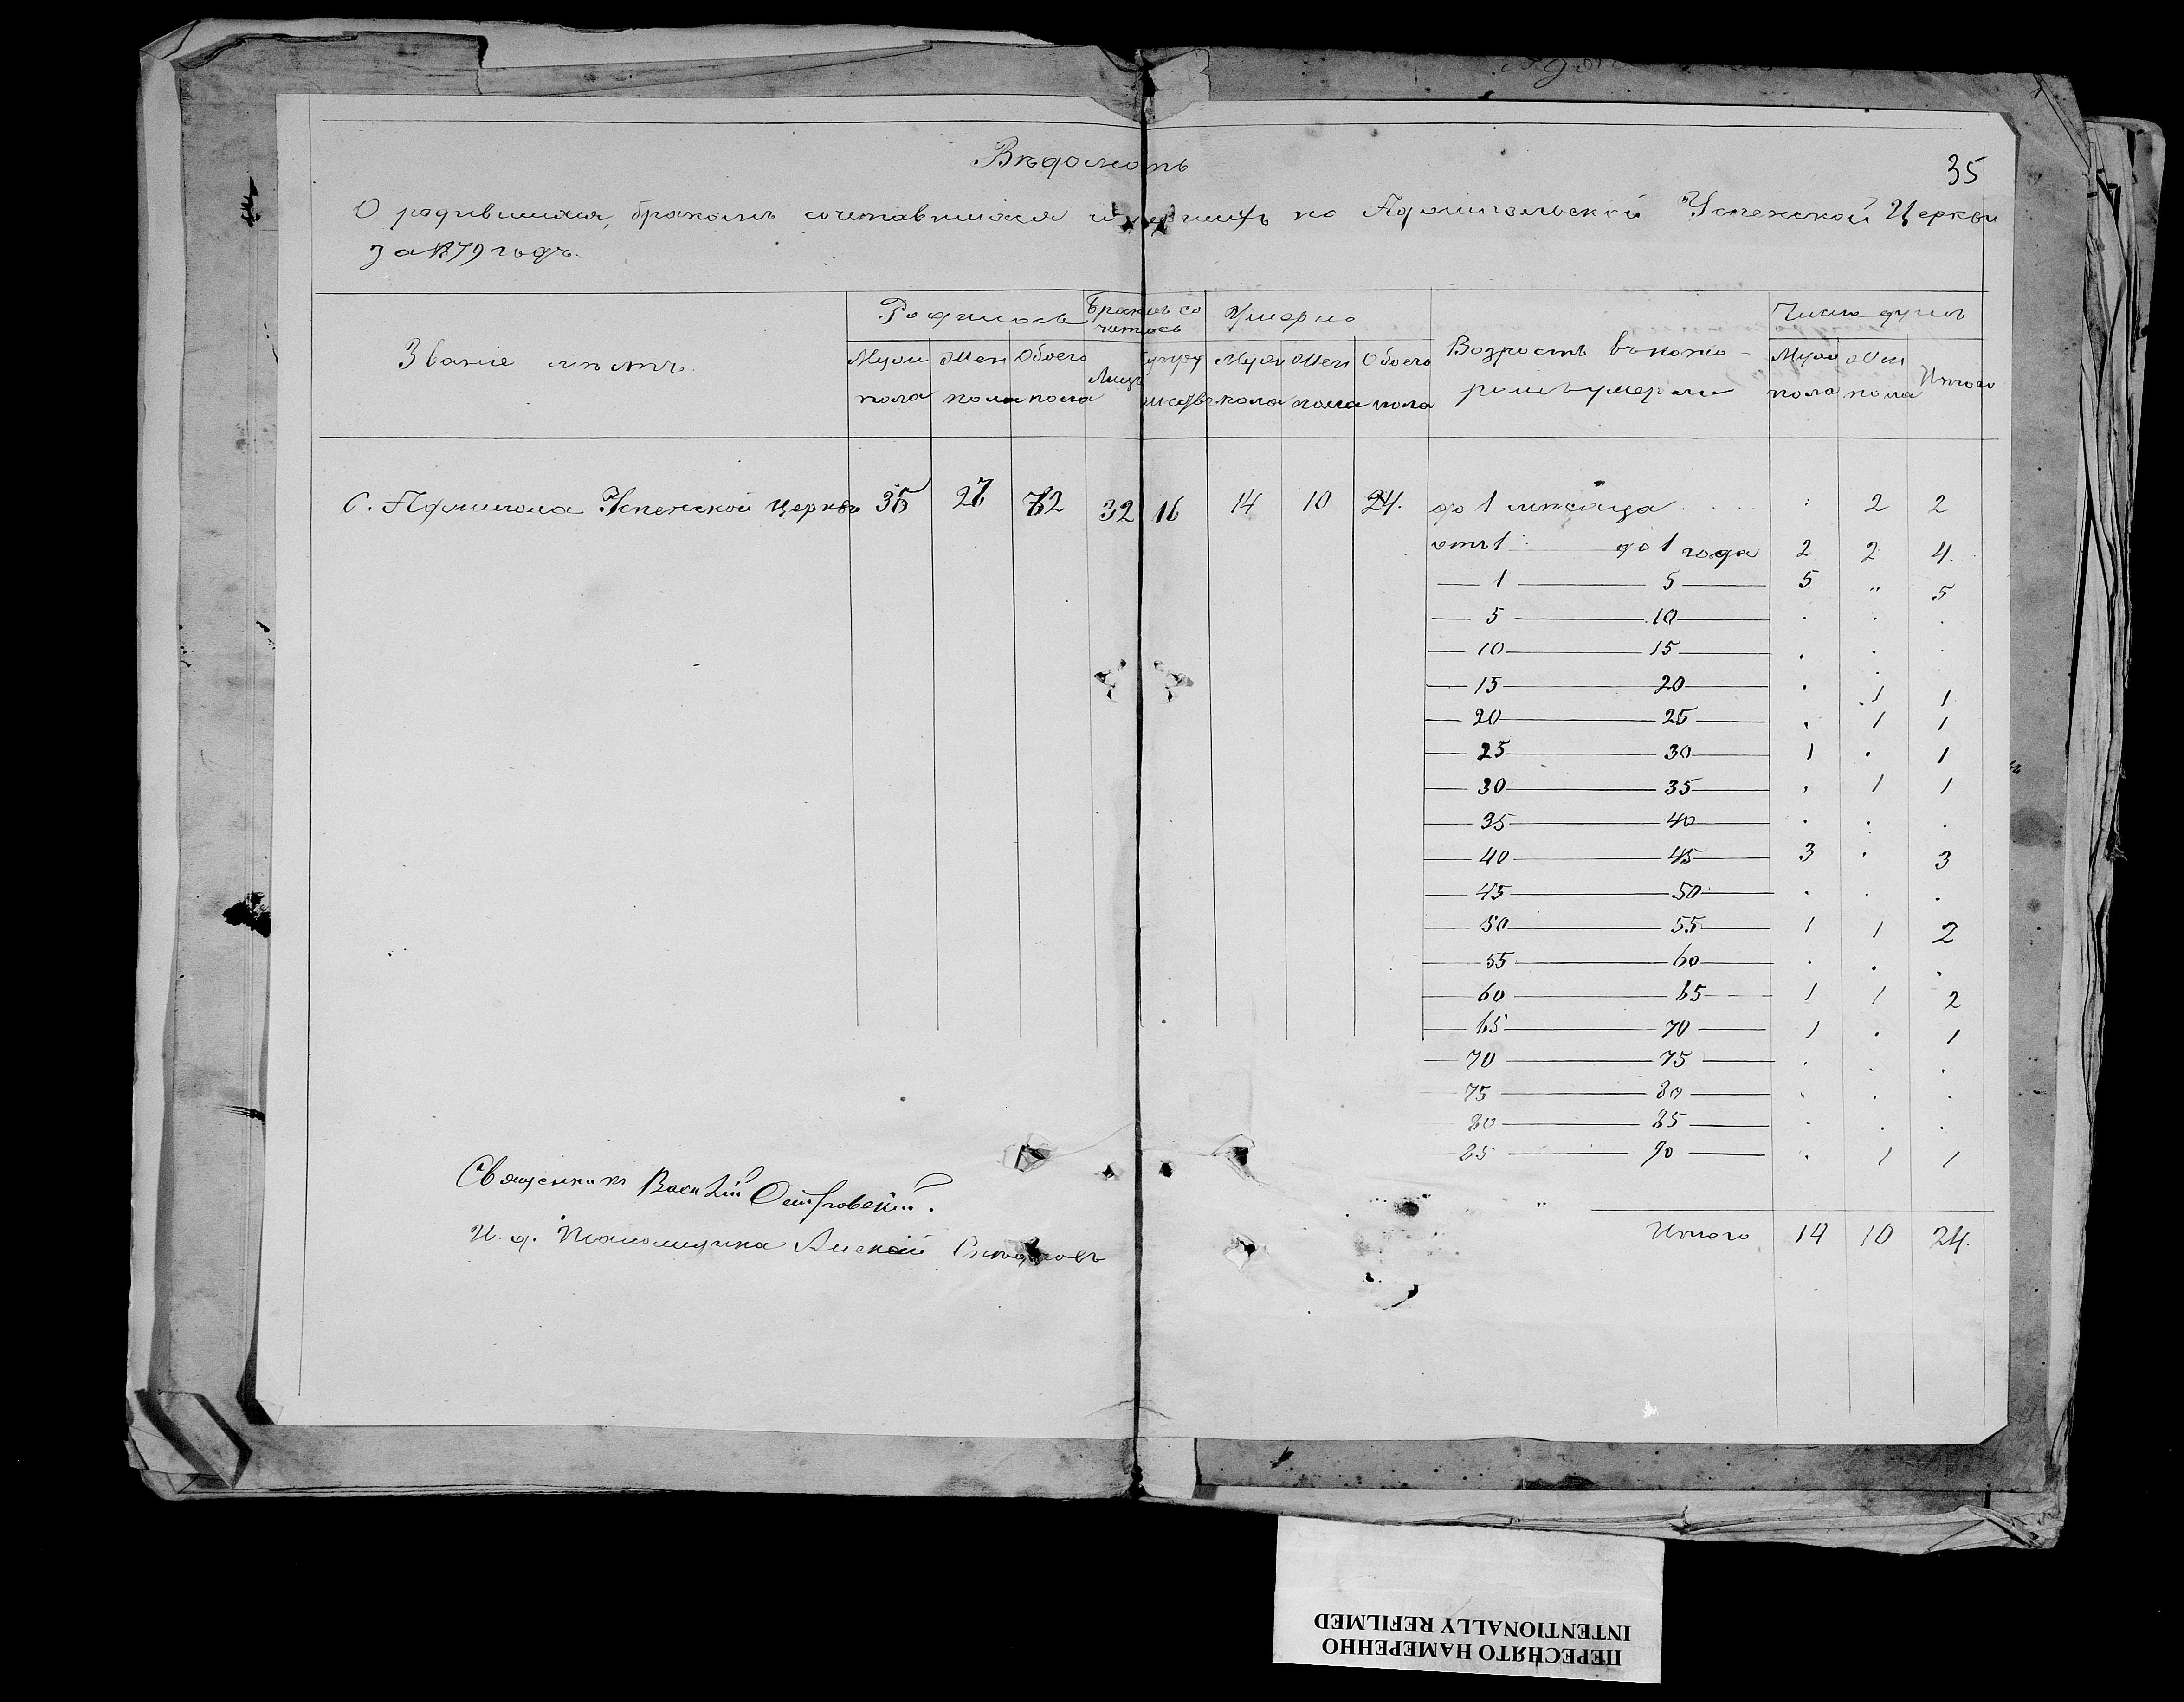 35
Вѣдомость
О родившихся, бракомъ сочетавшихся и умершихъ по Адампольской Успенской Церкви
за 1879 годъ.
Званіе мѣстъ. Родилось Бракомъ со Умерло Возрастъ въ кото- Число душъ
чталось
Муж Жен Обоего Лицъ Супру Муж Жен Обоего ромъ умерли Муж Жен Итого
пола пола пола жествъ пола пола пола пола пола
С. Успенской церкви 35 27 62 32 16 14 10 24. до 1 мѣсяца : 2 2
отъ 1 до 1 года 2 2 4.
1 5 5 " 5
5 10 . . .
10 15 . . .
15 20 . 1 1
20 25 . 1 1
25 30 1 . 1
30 35 . 1 1
35 40 . . .
40 45 3 . 3
45 50 . . .
50 55 1 1 2
55 60 . . .
60 65 1 1 2
65 70 1 . 1
70 75 . . .
75 80 . . .
80 85 . . .
85 90 . 1 1
"
Итого 14 10 24.
Священникъ Василій Островскій.
И. д. Псаломщика Алексій
ПЕРЕСНЯТО НАМЕРЕННО
INTENTIONALLY REFILMED